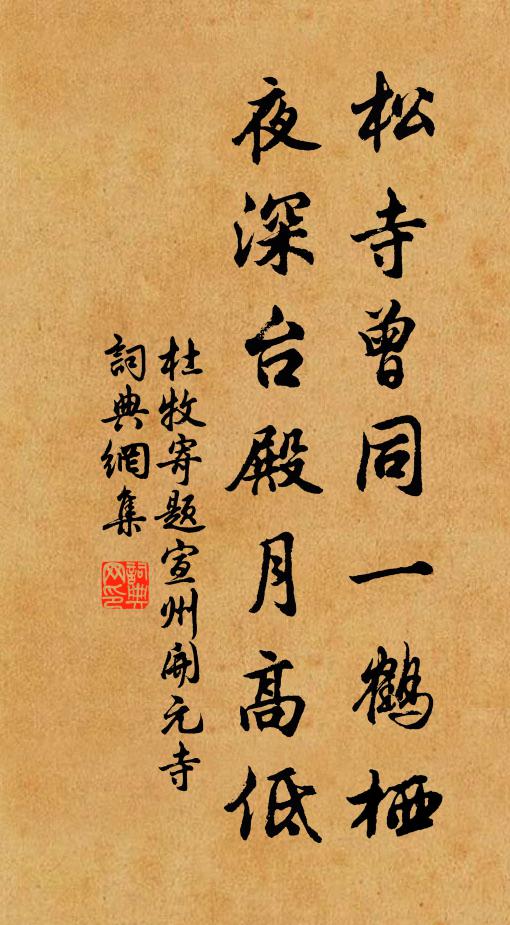 松寺曾同一鶴栖
夜深台殿月高低
杜牧寄题宣州開元寺
詞典網集
詞典
网印